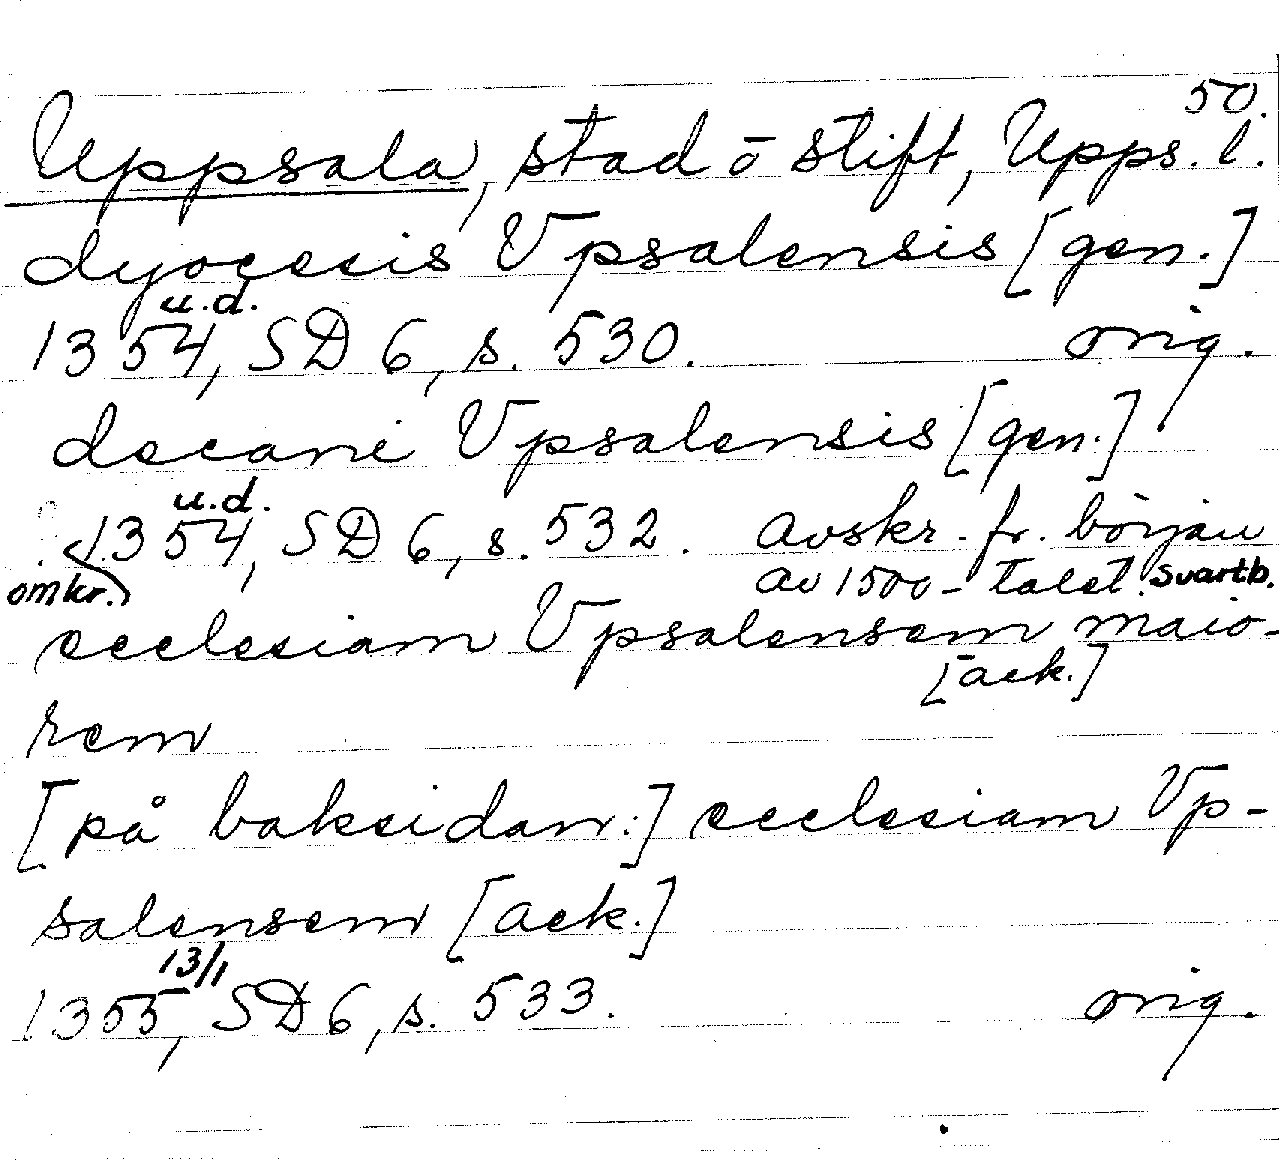 50.
Uppsala, stad o stift, Upps. l.
dyocecis Vpsalensis [gen.]
u.d.
1354, SD 6, s. 530. orig.
decani Vpsalensis [gen.]
u.d.
1354, SD 6, s. 532. Avskr. fr. början
omkr. av 1500-talet. svartb.
ecclesiam Vpsalensem maio-
[ack.]
rem
[på baksidan:] ecclesiam Vp-
salensem [ack.]
13/1
1355, SD 6, s. 533. orig.